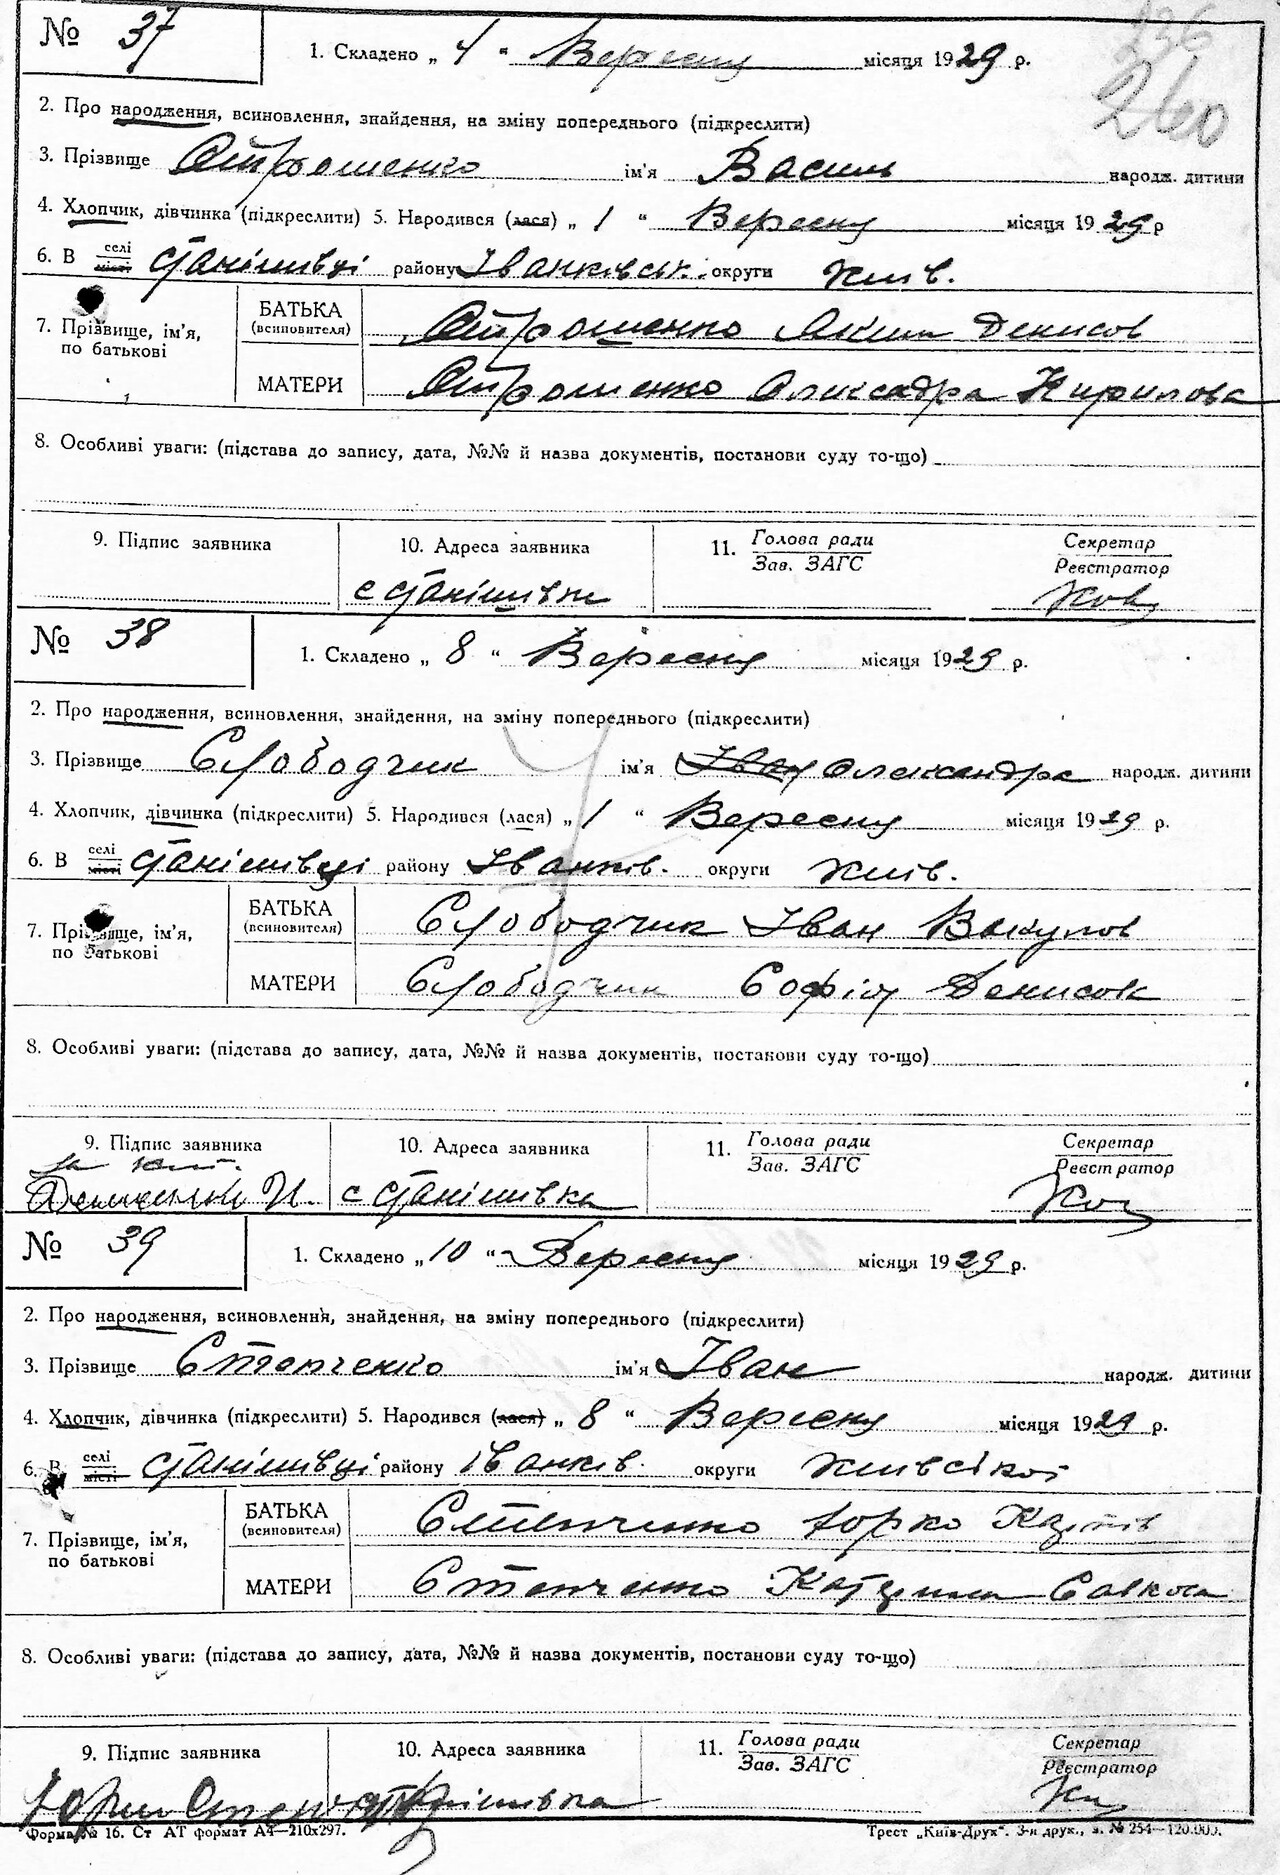 136
260
№ 37
1. Складено „ 4 “ Вересня місяця 1929 р.
2. Про народження, всиновлення, знайдення, на зміну попереднього (підкреслити)
3. Прізвище Отрошенко ім'я Василь народж. дитини
4. Хлопчик, дівчинка (підкреслити) 5. Народився (лася) „ 1 “ Вересня місяця 1929 р
6. В селі місті Станішівці району Іванківськ. округи Київ.
7. Прізвище, ім'я, по батькові
БАТЬКА (всиновителя) Отрошенко Аким Денисов
МАТЕРИ Отрошенко Олександра Кирилова
8. Особливі уваги: (підстава до запису, дата, №№ й назва документів, постанови суду то-що)
9. Підпис заявника 10. Адреса заявника 11. Голова ради Зав. ЗАГС Секретар Реєстратор
с Станішівка
№ 38
1. Складено „ 8 “ Вересня місяця 1929 р.
2. Про народження, всиновлення, знайдення, на зміну попереднього (підкреслити)
3. Прізвище Слободчик ім'я Іван Олександра народж. дитини
4. Хлопчик, дівчинка (підкреслити) 5. Народився (лася) „ 1 “ Вересня місяця 1929 р.
6. В селі місті Станішівці району Іванків. округи Київ.
7. Прізвище, ім'я, по батькові
БАТЬКА (всиновителя) Слободчик Іван Вакулов
МАТЕРИ Слободчик Софія Денисов
8. Особливі уваги: (підстава до запису, дата, №№ й назва документів, постанови суду то-що)
9. Підпис заявника 10. Адреса заявника 11. Голова ради Зав. ЗАГС Секретар Реєстратор
с Станішівка
№ 39
1. Складено „ 10 “ Вересня місяця 1929 р.
2. Про народження, всиновлення, знайдення, на зміну попереднього (підкреслити)
3. Прізвище Степченко ім'я Іван народж. дитини
4. Хлопчик, дівчинка (підкреслити) 5. Народився (лася) „ 8 “ Вересня місяця 1929 р.
6. В селі місті Станішівці району Іванків. округи Київської
7. Прізвище, ім'я, по батькові
БАТЬКА (всиновителя) Степченко Юрко
МАТЕРИ Степченко Катерина Савкова
8. Особливі уваги: (підстава до запису, дата, №№ й назва документів, постанови суду то-що)
9. Підпис заявника 10. Адреса заявника 11. Голова ради Зав. ЗАГС Секретар Реєстратор
Станішівка
Форма № 16. Ст АТ формат А4—210х297. Трест „Київ-Друк“. 3-я друк., з. № 254—120.000.